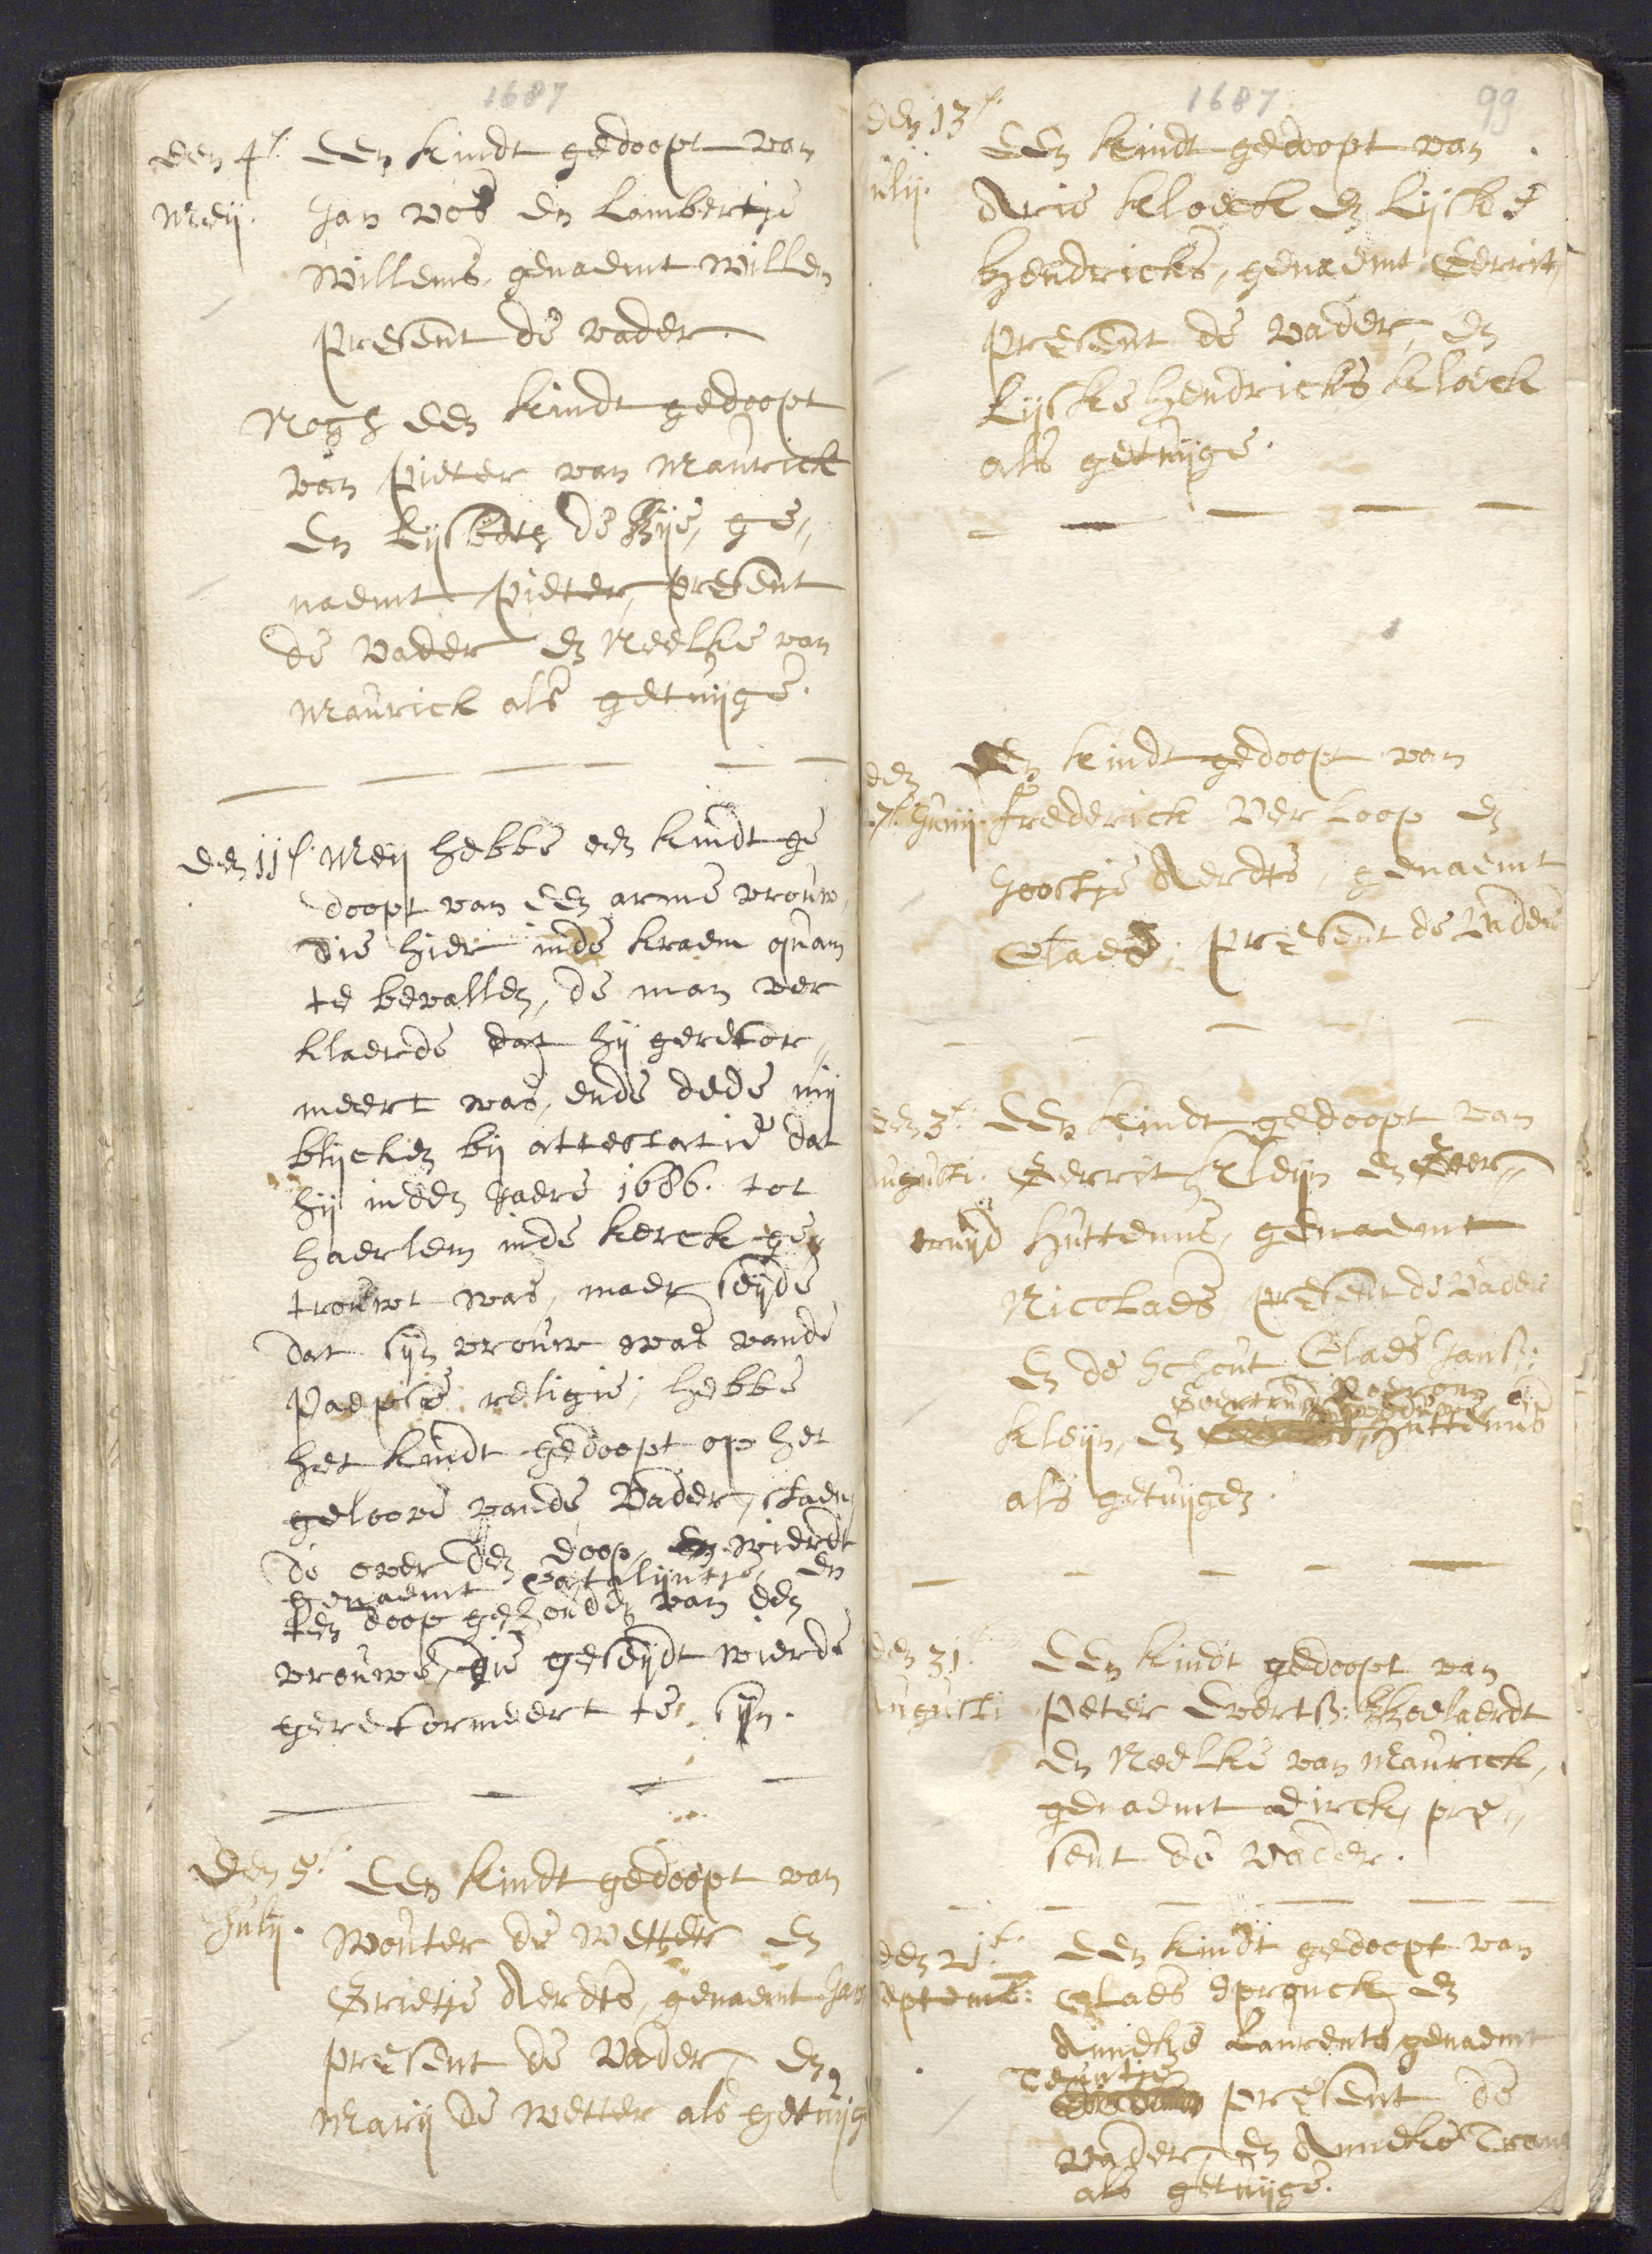 1687
den 4e. Een kindt gedoopt van
Meij. Jan Vos en Lambertje
Willems, genaemt Willem
present de vader.
Nogh een kindt gedoopt
van Pieter van Maurick
en Lijsbeth de , ge„
naemt Pieter, present
de vader en Neelke van
Maurick als getuijge.
den 11e. Meij hebbe een kindt ge
doopt van een arme vrouw,
die hier inde kraem quam
te bevallen, de man ver
klaerde dat hij gerefor„
meert was, ende dede mij
blijcken bij attestatie dat
hij inden Jaere 1686. tot
haerlem inde kerck ge„
trouwt was, maer seijde
dat sijn vrouw was vande
Paepse religie; hebbe
het kindt gedoopt op het
geloove vande Vader, staen
de over den doop, en wierdt
genaemt Catalijntje, en
ten doop gehouden van een
vrouwe, die geseijdt wierde
gereformeert te sijn.
den 5e. Een kindt gedoopt van
Julij. Wouter de Wetter en
Grietje Aerdts, genaemt Jan
present de Vader, en
Marij de Wetter als getuijg
1687 99
den 13e.
ulij. Een kindt gedoopt van
Arie Kloeck en Lijske
Hendricks, genaemt Gerrit,
present de vader, en
Lijske Hendricks Kloeck
als getuijge.
den Een kindt gedoopt van
7e. Junij. Frederick Verloop en
Joostje Aerdts, genaemt
Claes; present de Vader
den 3e. Een kindt gedoopt van
Augusti. Gerrit Kleijn en Geer„
truijd Huttenus, genaemt
Nicolaes present de Vader
en de schout Claes Jans:
Geertruijd
Kleijn, en Huttenus
als getuijgen.
den 31e. Een kindt gedoopt van
Augusti Peter Everts:
en Neelke van Maurick,
genaemt dirck, pre„
sent de vader.
den 21e. Een kindt gedoopt van
eptemb: Claes Spronck en
Anneke Laurents genaemt
Teuntje present de
vader, en Anneke
als getuijge.